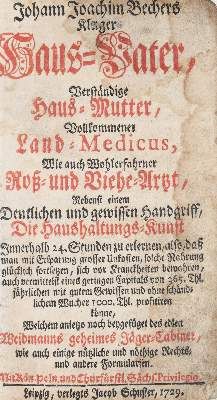 Johann Joachim Bechers
Kluger
Haus-Vater,
Verständige
Haus-Mutter,
Vollkommener
Land-Medicus,
Wie auch Wohlerfahrner
Roß-und Viehe-Artzt,
Nebenst einem
Deutlichen und gewissen Handgriff,
Die Haushaltungs-Kunst
Innerhalb 24. Stunden zu erlernen, also, daß
man mit Ersparung grosser Unkosten, solche Nahrung
glücklich fortsetzen, sich vor Kranckheiten bewahren,
auch vermittelst eines geringen Capitals von 365. Thl.
jährlichen mit gutem Gewissen und ohne schänd-
lichen Wucher 1000. Thl. profitiren
könne,
Welchem anietzo noch beygefüget des edlen
Weidmanns geheimes Jäger-Cabinet,
wie auch einige nützliche und nöthige Rechts-
und andere Formularien.
Mit Kön. Poln. und Churfürstl. Sächs. Privilegio.
Leipzig, verlegts Jacob Schuster, 1729.